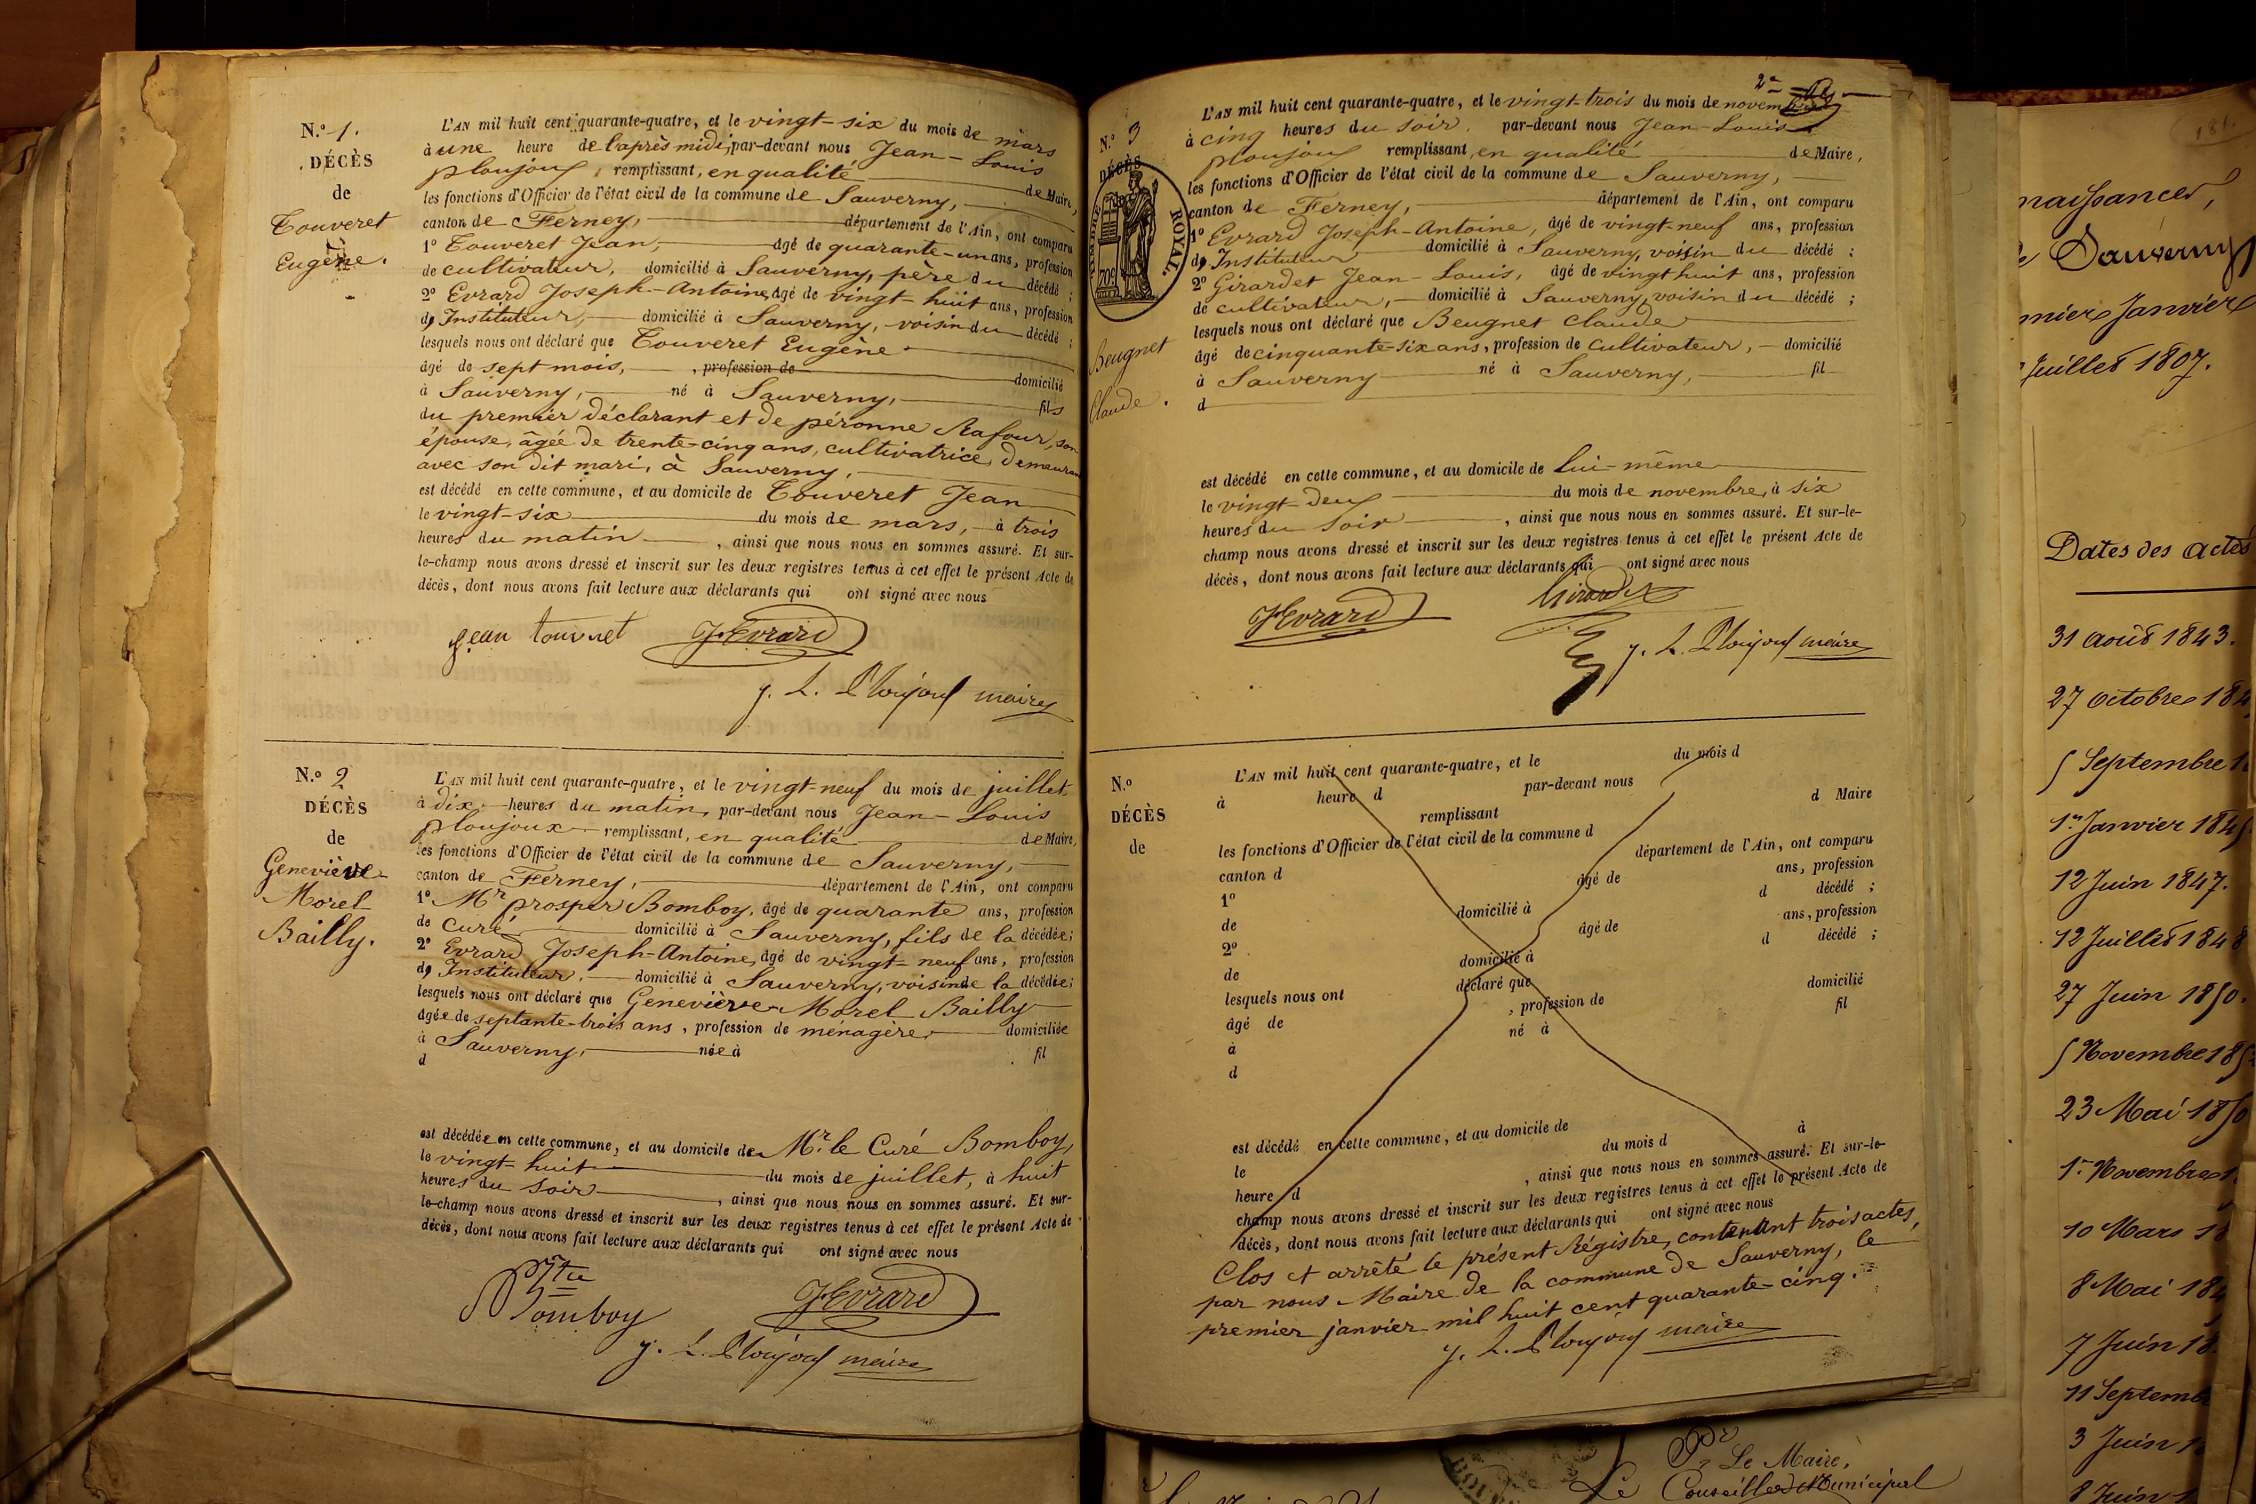 N.º 1.
DÉCÈS
de
Touveret
Eugène.
L'AN mil huit cent quarante-quatre, et le vingt-six du mois de mars
à une heure de l'après midi, par-devant nous Jean-Louis
ploujoux, remplissant, en qualité de Maire,
les fonctions d'Officier de l'état civil de la commune de Sauverny,
canton de Ferney, département de l'Ain, ont comparu
1º Touveret Jean, âgé de quarante-un ans, profession
de cultivateur, domicilié à Sauverny, père du décédé;
2º Evrard Joseph-Antoine, âgé de vingt-huit ans, profession
d'Instituteur, domicilié à Sauverny, voisin du décédé;
lesquels nous ont déclaré que Touveret Eugène
âgé de sept mois, , profession de domicilié
à Sauverny, né à Sauverny, fils
du premier déclarant et de péronne Rafour, son
épouse, âgée de trente-cinq ans, cultivatrice, demeurant
avec son dit mari, à Sauverny,
est décédé en cette commune, et au domicile de Touveret Jean
le vingt-six du mois de mars, à trois
heures du matin , ainsi que nous nous en sommes assuré. Et sur-
le-champ nous avons dressé et inscrit sur les deux registres tenus à cet effet le présent Acte de
décès, dont nous avons fait lecture aux déclarants qui ont signé avec nous
jean touvret JEvrard
J. L. Ploujoux maire
N.º 2
DÉCÈS
de
Geneviève
Morel
Bailly.
L'AN mil huit cent quarante-quatre, et le vingt-neuf du mois de juillet
à dix heures du matin, par-devant nous Jean-Louis
ploujoux remplissant, en qualité de Maire,
les fonctions d'Officier de l'état civil de la commune de Sauverny,
canton de Ferney, département de l'Ain, ont comparu
1º Mr prosper Bomboy, âgé de quarante ans, profession
de Curé domicilié à Sauverny, fils de la décédée;
2º Evrard Joseph-Antoine, âgé de vingt-neuf ans, profession
d'Instituteur, domicilié à Sauverny, voisin de la décédée;
lesquels nous ont déclaré que Geneviève Morel Bailly
âgée de septante-trois ans, profession de ménagère, domiciliée
à Sauverny, née à fil
d
est décédée en cette commune, et au domicile de Mr. le Curé Bomboy,
le vingt-huit du mois de juillet, à huit
heures du soir , ainsi que nous nous en sommes assuré. Et sur-
le-champ nous avons dressé et inscrit sur les deux registres tenus à cet effet le présent Acte de
décès, dont nous avons fait lecture aux déclarants qui ont signé avec nous
Bomboy JEvrard
J. L. Ploujoux maire
2e
N.º 3
DÉCÈS
de
TIMBRE ROYAL.
70c
Beugnet
Claude.
L'AN mil huit cent quarante-quatre, et le vingt-trois du mois de novembre
à cinq heures du soir, par-devant nous Jean-Louis
ploujoux remplissant, en qualité de Maire,
les fonctions d'Officier de l'état civil de la commune de Sauverny,
canton de Ferney, département de l'Ain, ont comparu
1º Evrard Joseph-Antoine, âgé de vingt-neuf ans, profession
d'Instituteur domicilié à Sauverny, voisin du décédé;
2º Girardet Jean-Louis, âgé de vingt huit ans, profession
de cultivateur, domicilié à Sauverny, voisin du décédé;
lesquels nous ont déclaré que Beugnet Claude
âgé de cinquante-six ans, profession de cultivateur, domicilié
à Sauverny né à Sauverny, fil
d
est décédé en cette commune, et au domicile de lui-même
le vingt-deux du mois de novembre, à six
heures du soir , ainsi que nous nous en sommes assuré. Et sur-le-
champ nous avons dressé et inscrit sur les deux registres tenus à cet effet le présent Acte de
décès, dont nous avons fait lecture aux déclarants qui ont signé avec nous
JEvrard Girardet
J. L. Ploujoux maire
N.º
DÉCÈS
de
L'AN mil huit cent quarante-quatre, et le du mois d
à heure d par-devant nous
remplissant d Maire
les fonctions d'Officier de l'état civil de la commune d
canton d département de l'Ain, ont comparu
1º âgé de ans, profession
de domicilié à d décédé;
2º âgé de ans, profession
de domicilié à d décédé;
lesquels nous ont déclaré que
âgé de , profession de domicilié
à né à fil
d
est décédé en cette commune, et au domicile de
le du mois d à
heure d , ainsi que nous nous en sommes assuré. Et sur-le-
champ nous avons dressé et inscrit sur les deux registres tenus à cet effet le présent Acte de
décès, dont nous avons fait lecture aux déclarants qui ont signé avec nous
Clos et arrêté le présent Régistre, contenant trois actes,
par nous Maire de la commune de Sauverny, le
premier janvier mil huit cent quarante-cinq.
J. L. Ploujoux maire
Le Maire,
Le Conseiller Municipal
181.
naissances,
Sauverny
mier Janvier
Juillet 1807.
Dates des actes
31 août 1843.
27 octobre 184
5 Septembre 1
1er Janvier 184
12 Juin 1847.
12 Juillet 1848
27 Juin 1850.
5 Novembre 185
23 Mai 1850
1er Novembre 1
10 Mars 18
8 Mai 184
7 Juin 18
11 Septemb
3 Juin 1
8 Juin 1